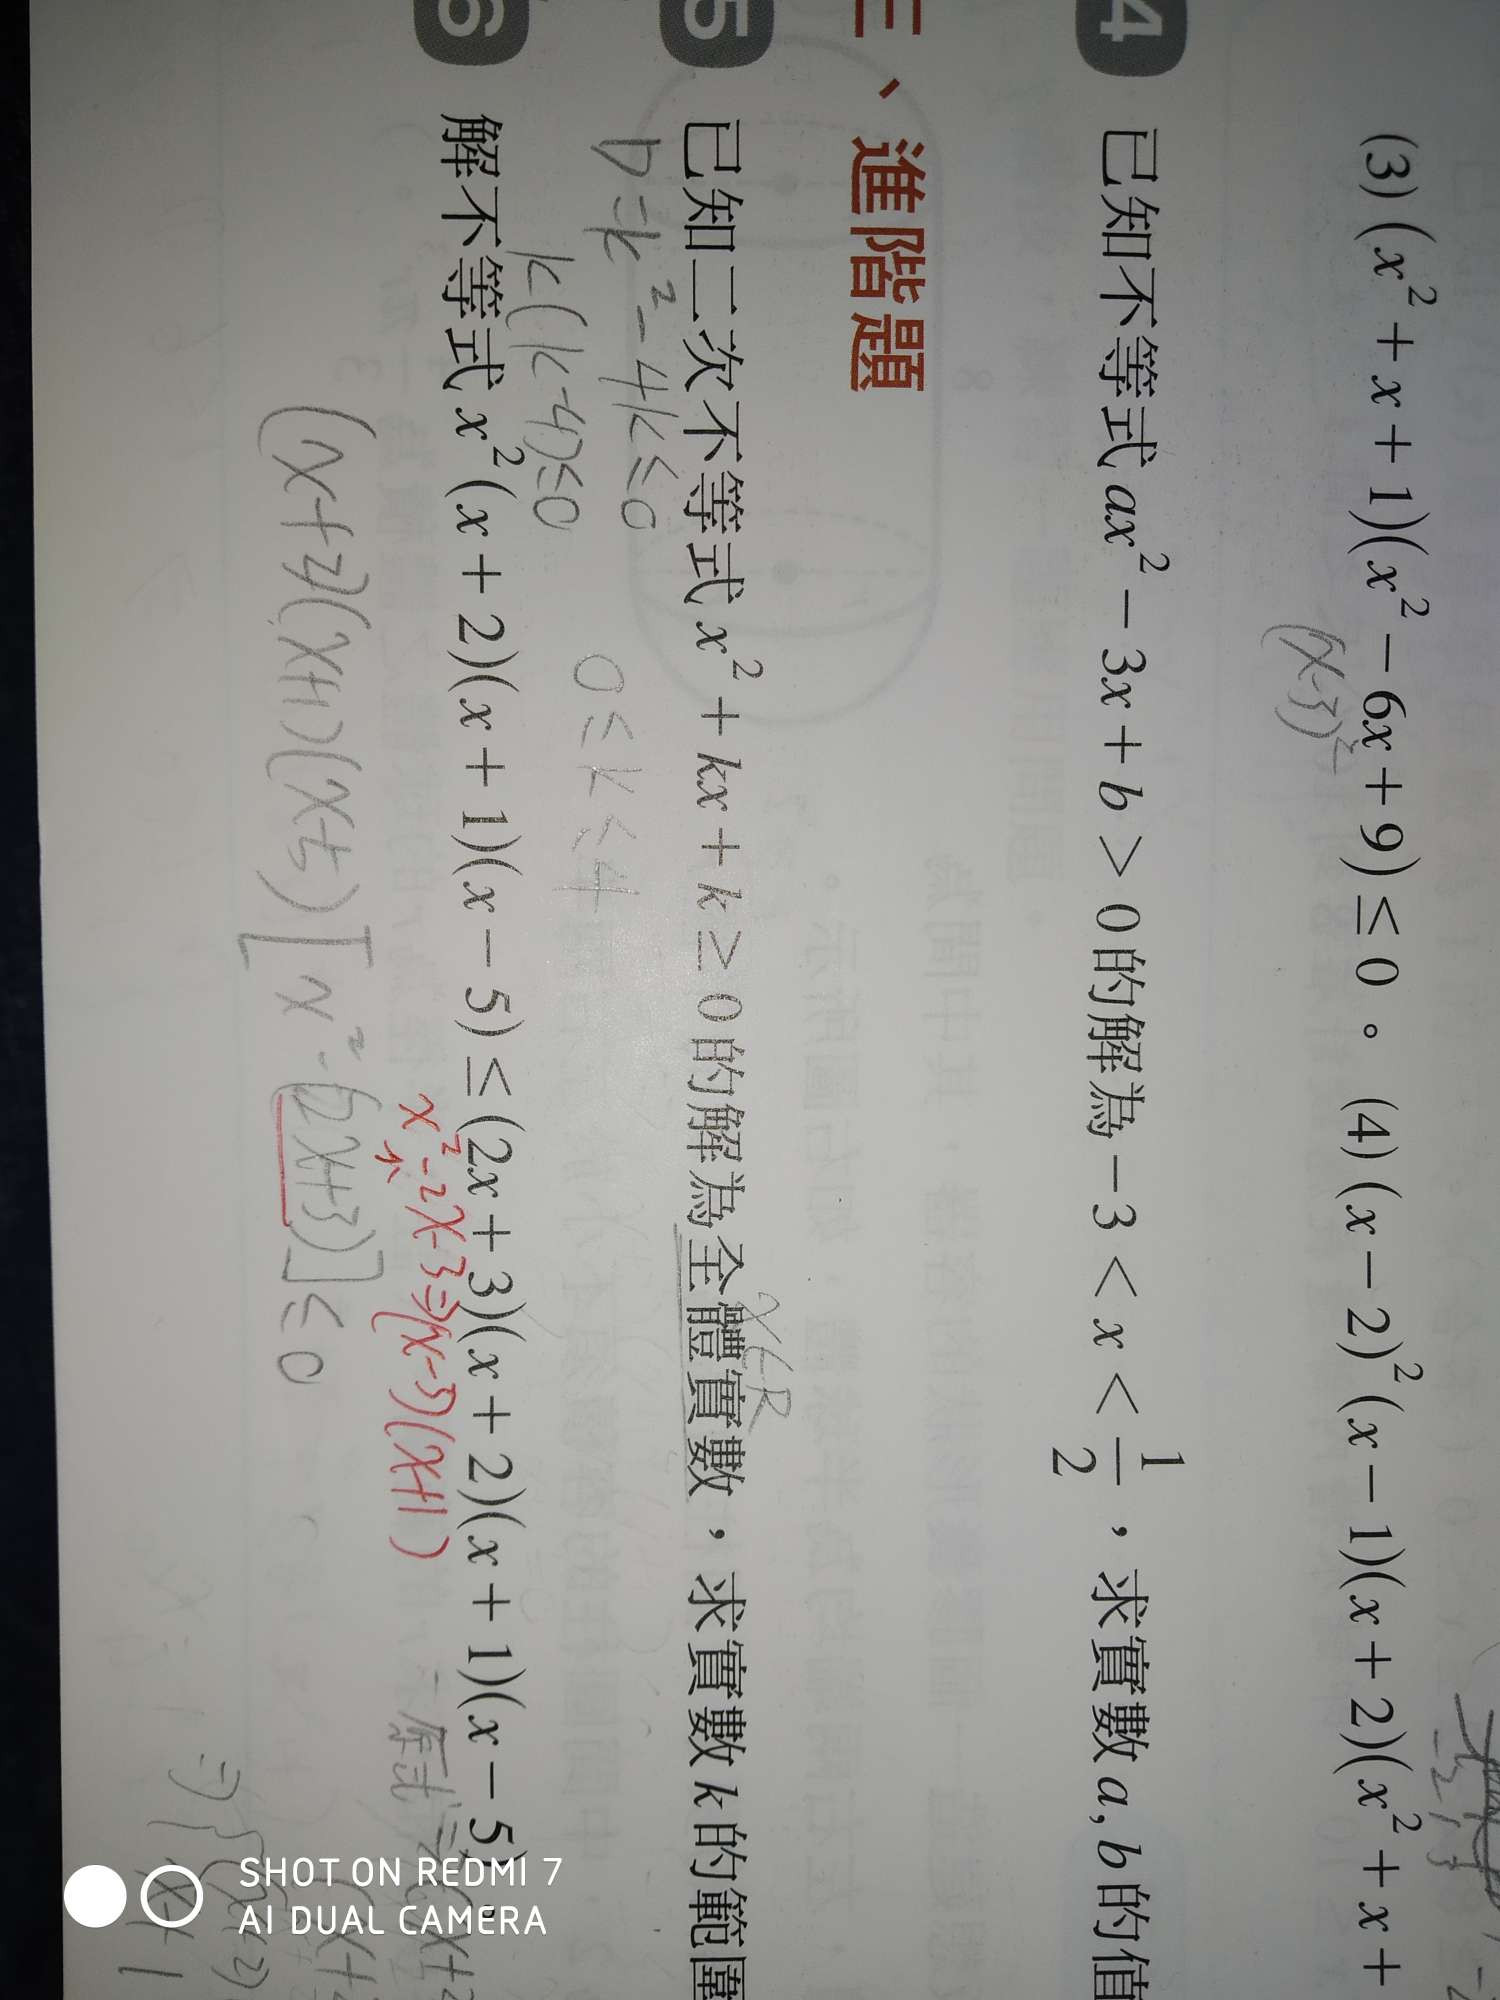 (3) (x² + x + 1)(x² − 6x + 9) ≤ 0。 (4) (x − 2)² (x − 1)(x + 2)(x² + x +
(x-3)²
4 已知不等式 ax² − 3x + b > 0 的解為 −3 < x < 1/2 ，求實數 a, b 的值
三、進階題
5 已知二次不等式 x² + kx + k ≥ 0 的解為全體實數，求實數 k 的範圍
x∈R
D=k²-4k≤0
k(k-4)≤0
0≤k≤4
6 解不等式 x² (x + 2)(x + 1)(x − 5) ≤ (2x + 3)(x + 2)(x + 1)(x − 5)
x²-2x-3⇒(x-3)(x+1)
原式⇒
(x+2)(x+1)(x-5)[x²-(2x+3)]≤0
SHOT ON REDMI 7
AI DUAL CAMERA